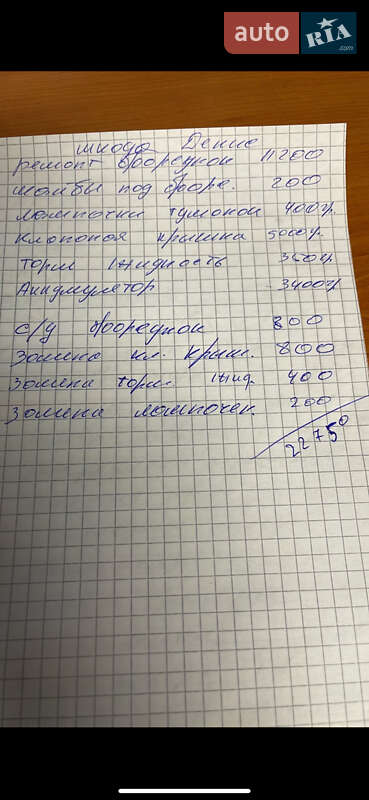 auto RIA .com
шкода Денис
ремонт форсунок 11200
шайбы под форс. 200
лампочки туманок 400г.
клапоная крышка 5000г.
торм жидкость 350г
Аккумулятор 3400г
с/у форсунок 800
Замена кл. крыш. 800
Замена торм. жид. 400
Замена лампочек. 200
22750